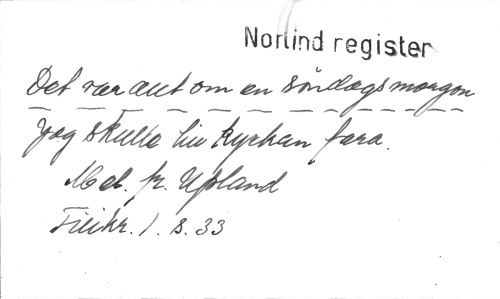 Norlind register
Det var allt om en söndagsmorgon
jag skulle till kyrkan fara.
Mel. fr. Upland
Fileikr. 1. s. 33